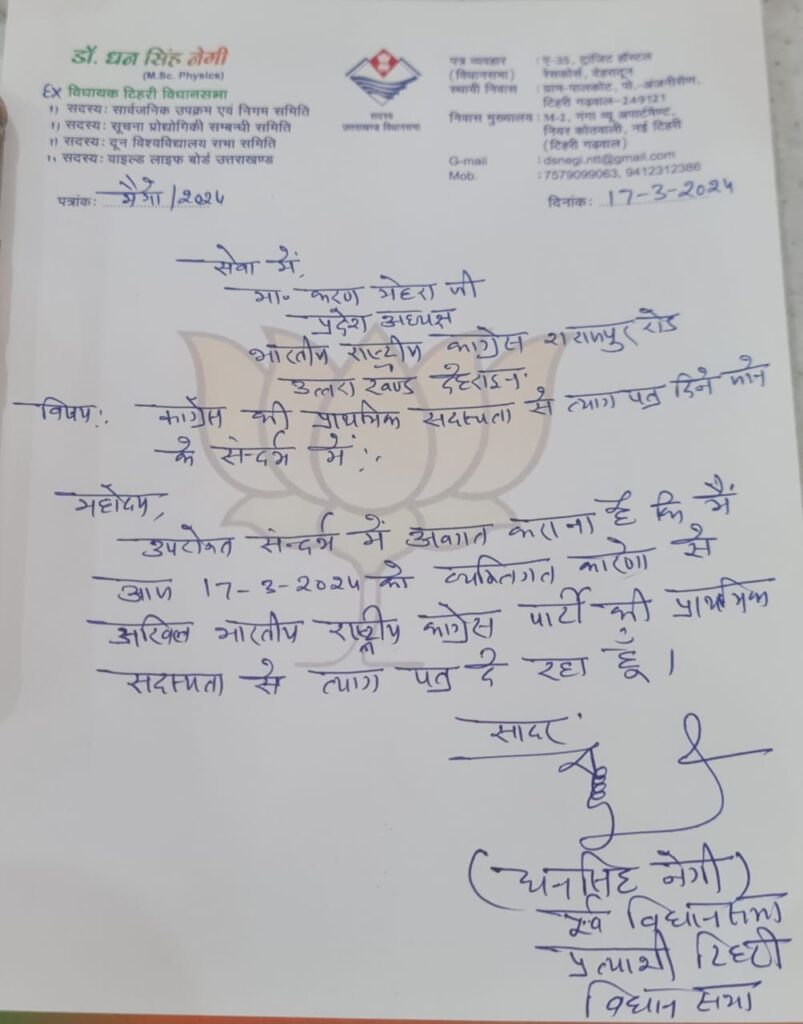 डॉ. धन सिंह नेगी
(M.Sc. Physics)
Ex विधायक टिहरी विधानसभा
सदस्य: सार्वजनिक उपक्रम एवं निगम समिति
सदस्य: सूचना प्रोद्योगिकी सम्बन्धी समिति
सदस्य: दून विश्वविद्यालय सभा समिति
सदस्य: वाइल्ड लाइफ बोर्ड उत्तराखण्ड
पत्रांक: मैमो/2024
सदस्य
उत्तराखण्ड विधानसभा
पत्र व्यवहार : ए-35, ट्रांजिट हॉस्टल
(विधानसभा) रेसकोर्स, देहरादून
स्थायी निवास : ग्राम-पालकोट, पो.-अंजनीसैण,
टिहरी गढ़वाल-249121
निवास मुख्यालय : M-2, गंगा व्यू अपार्टमेण्ट,
नियर कोतवाली, नई टिहरी
(टिहरी गढ़वाल)
G-mail : dsnegi.ntt@gmail.com
Mob. : 7579099063, 9412312386
दिनांक: 17-3-2024
सेवा में,
मा० करण मेहरा जी
प्रदेश अध्यक्ष
भारतीय राष्ट्रीय कांग्रेस रोड
उत्तराखण्ड देहरादून
विषय:. कांग्रेस की प्राथमिक सदस्यता से त्याग पत्र दिने जाने
के संन्दर्भ में:.
महोदय,
उपरोक्त संन्दर्भ में अवगत कराना है कि मैं
आज 17-3-2024 को व्यक्तिगत कारणो से
अखिल भारतीय राष्ट्रीय कांग्रेस पार्टी की प्राथमिक
सदस्यता से त्याग पत्र दे रहा हूँ।
सादर
(धनसिंह नेगी)
पूर्व विधानसभा
प्रत्याशी टिहरी
विधान सभा